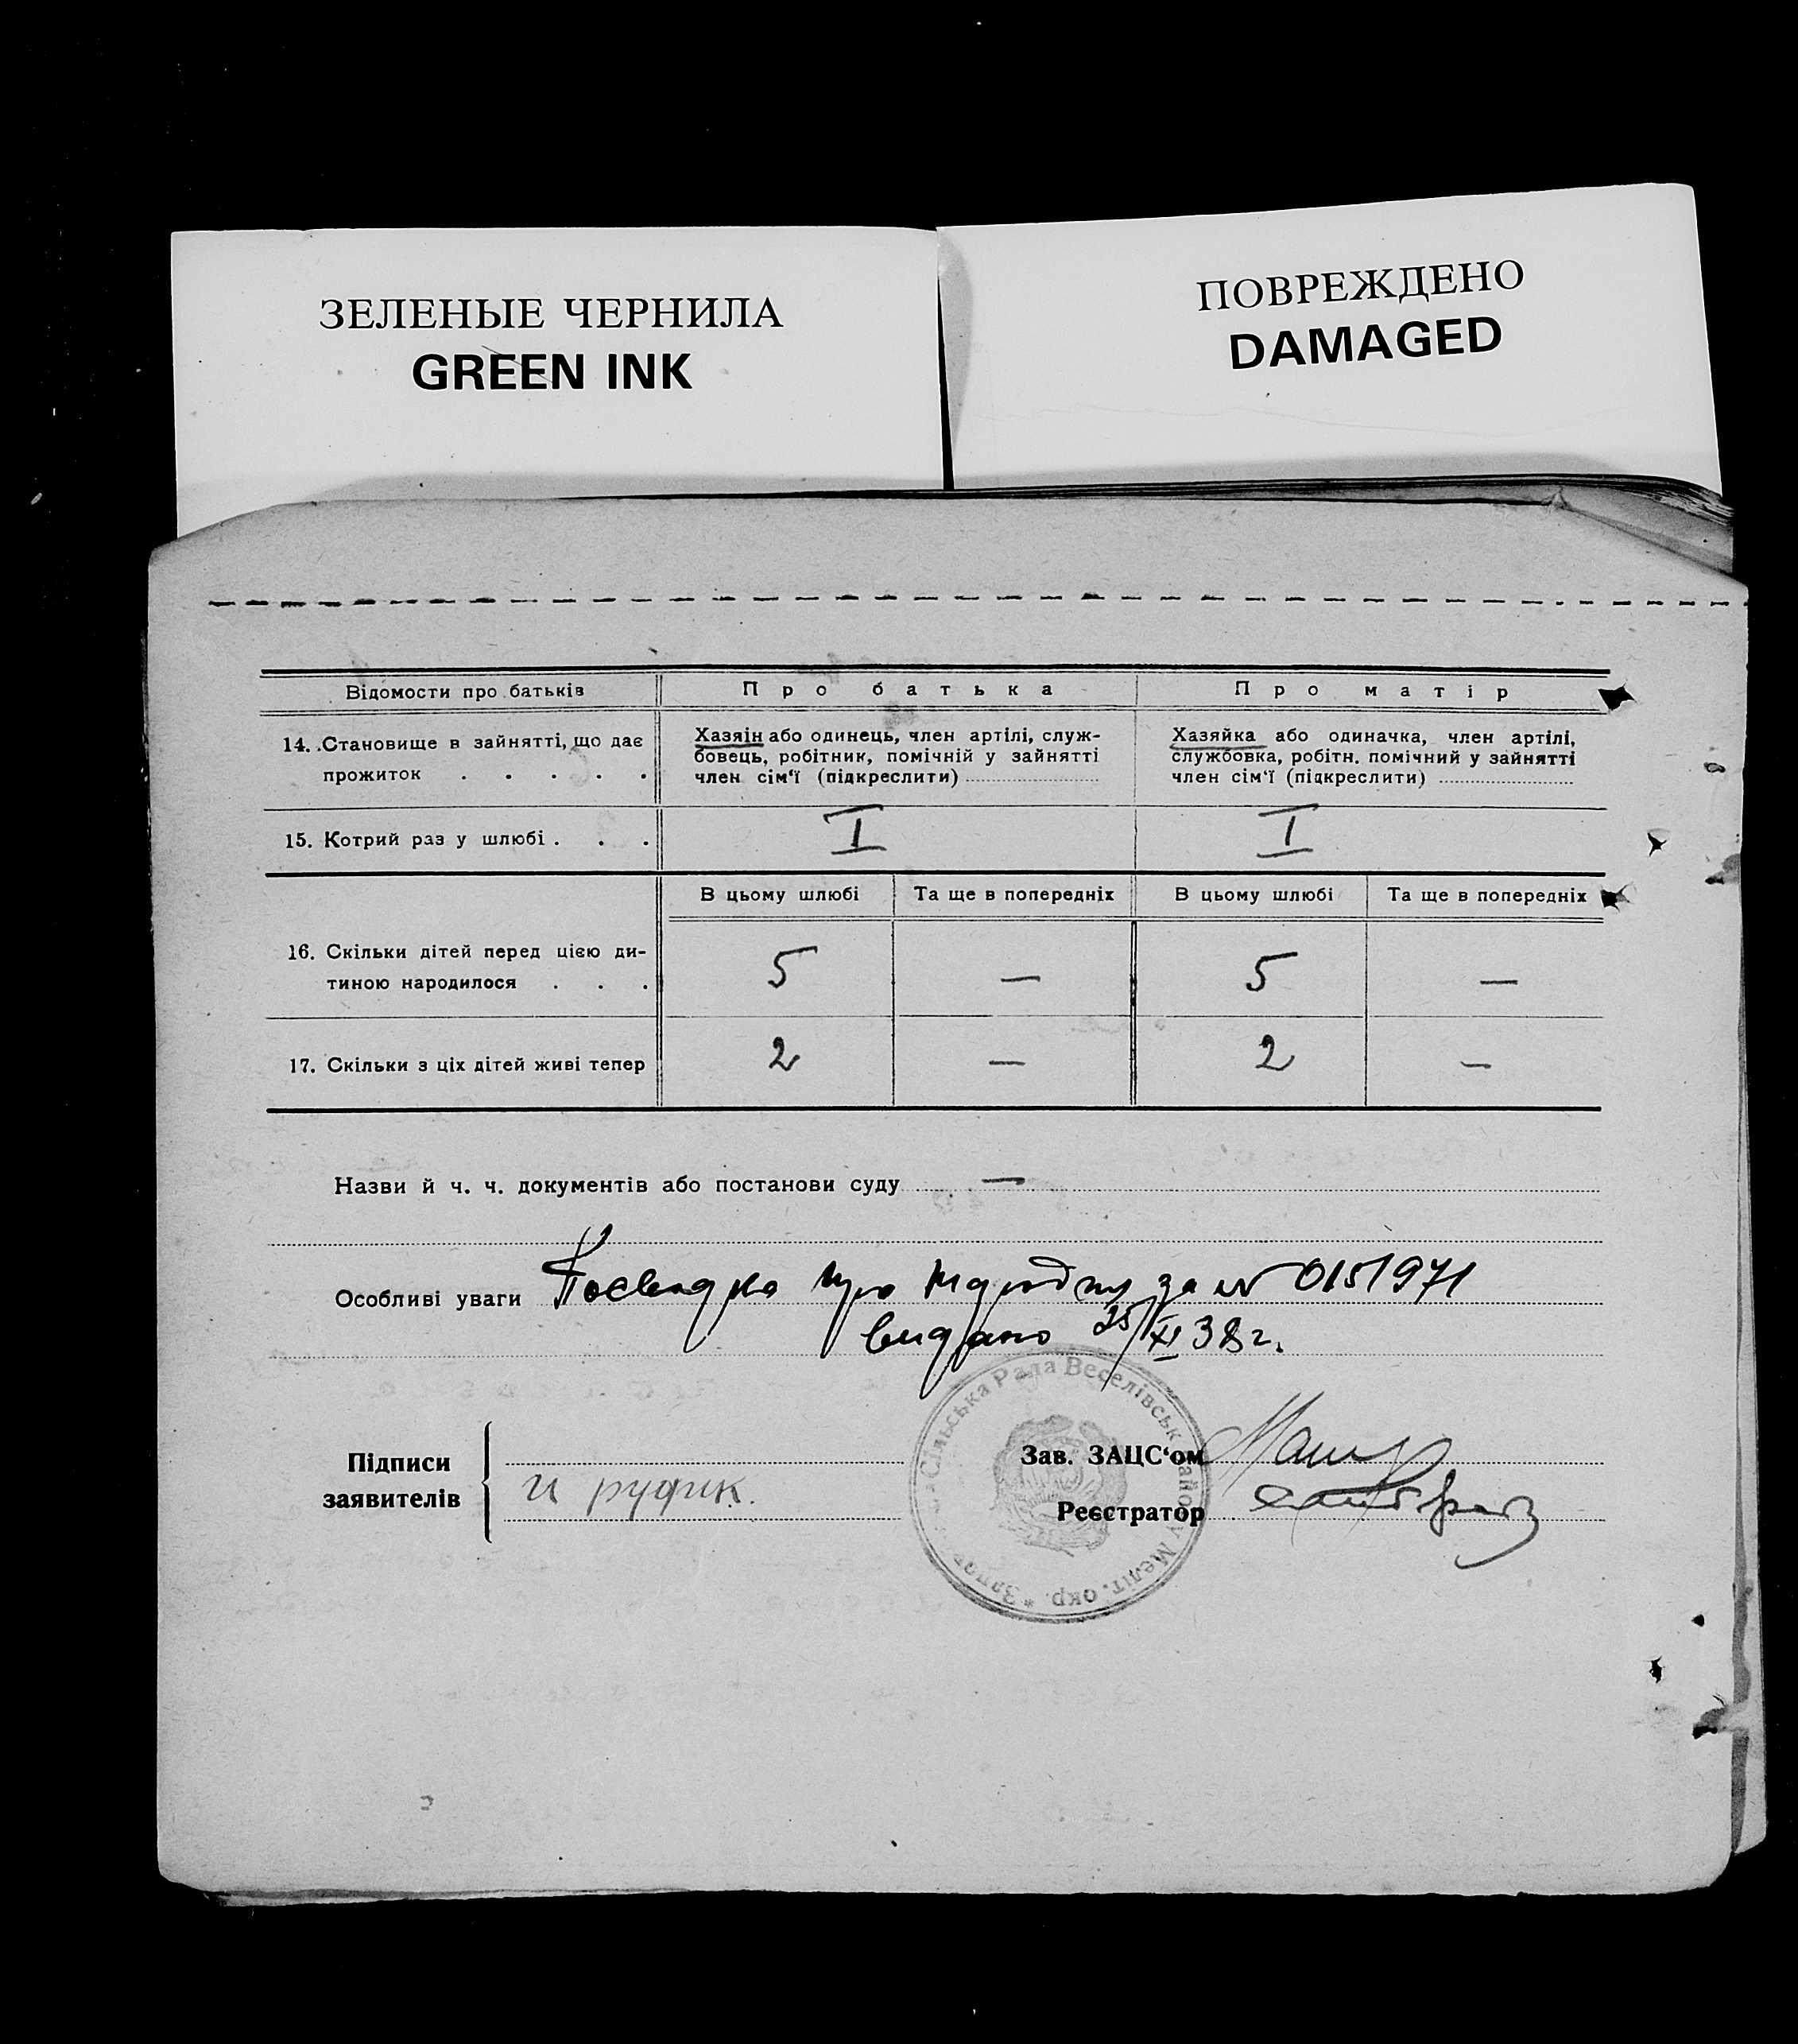 ЗЕЛЕНЫЕ ЧЕРНИЛА
GREEN INK
ПОВРЕЖДЕНО
DAMAGED
Відомости про батьків
Про батька
Про матір
14. Становище в зайнятті, що дає
прожиток . . . . .
Хазяін або одинець, член артілі, служ-
бовець, робітник, помічній у зайнятті
член сім‘ї (підкреслити)
Хазяйка або одиначка, член артілі,
службовка, робітн. помічний у зайнятті
член сім‘ї (підкреслити)
15. Котрий раз у шлюбі . . .
I
I
В цьому шлюбі
Та ще в попередніх
В цьому шлюбі
Та ще в попередніх
16. Скільки дітей перед цією ди-
тиною народилося . . .
5
—
5
—
17. Скільки з ціх дітей живі тепер
2
—
2
—
Назви й ч. ч. документів або постанови суду —
Особливі уваги Посвідка про за № 0151971
видано 25/XI 38 г.
Підписи
заявителів
и рудик.
Зав. ЗАЦС‘ом
Реєстратор
Сільська Рада Веселівськ району Меліт. окр. *